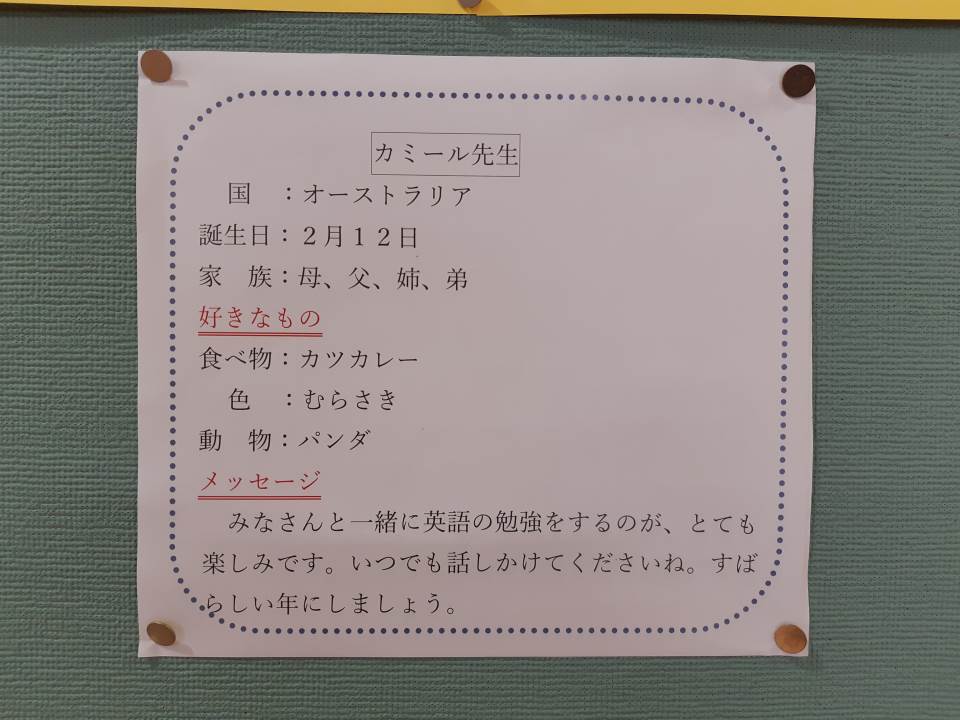 カミール先生
国　：オーストラリア
誕生日：２月１２日
家　族：母、父、姉、弟
好きなもの
食べ物：カツカレー
色　：むらさき
動　物：パンダ
メッセージ
みなさんと一緒に英語の勉強をするのが、とても
楽しみです。いつでも話しかけてくださいね。すば
らしい年にしましょう。